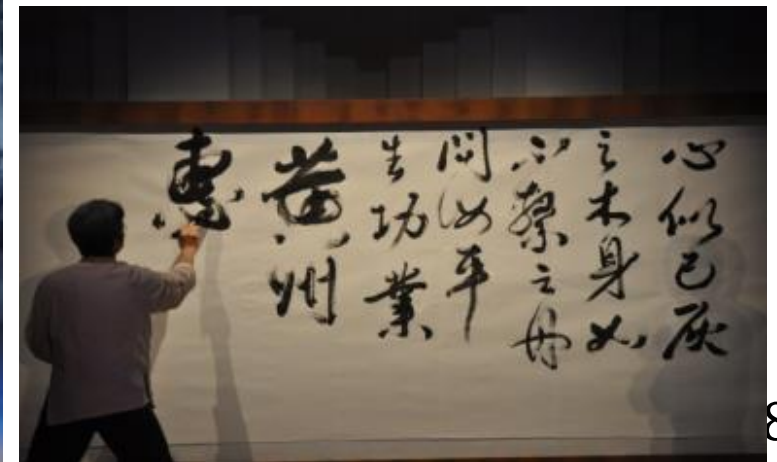 心似已灰
之木身如
不繫之舟
問汝平
生功業
黃州
惠
8